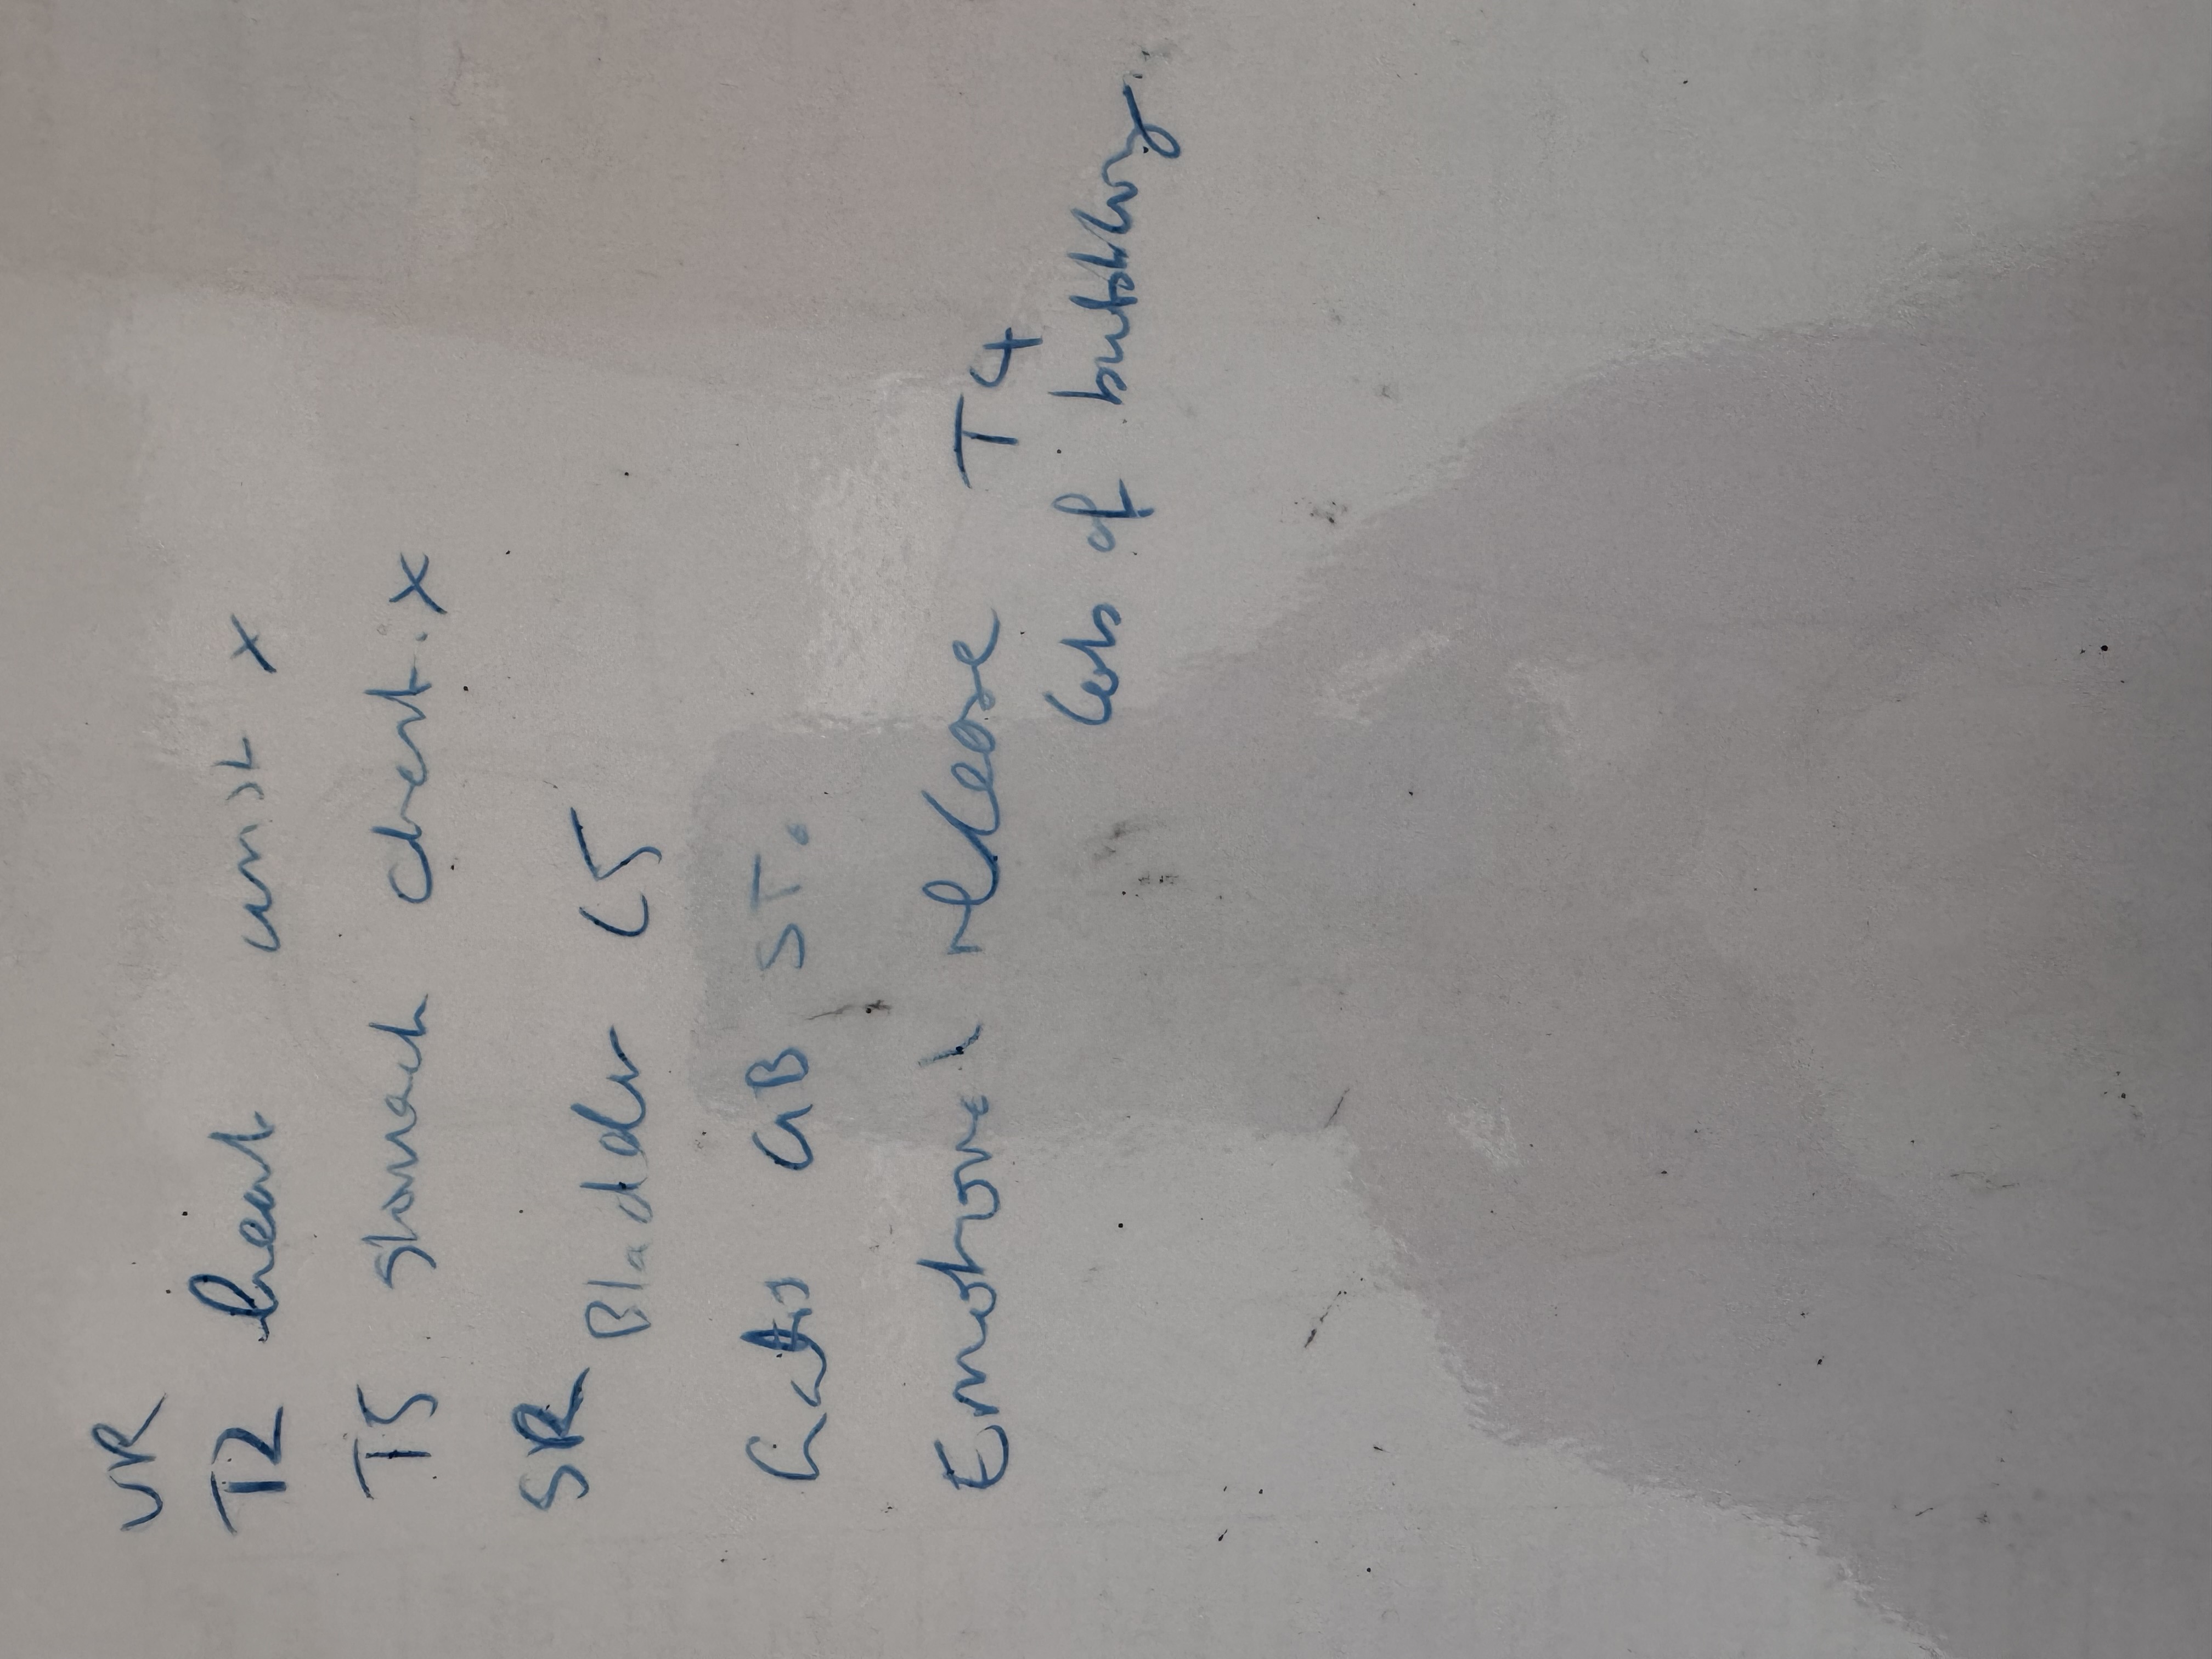 VR
T2 heart wrist x
T5 stomach chest . x
SR Bladder L5
GB ST.
Emotional release T4
Lots of butterfly